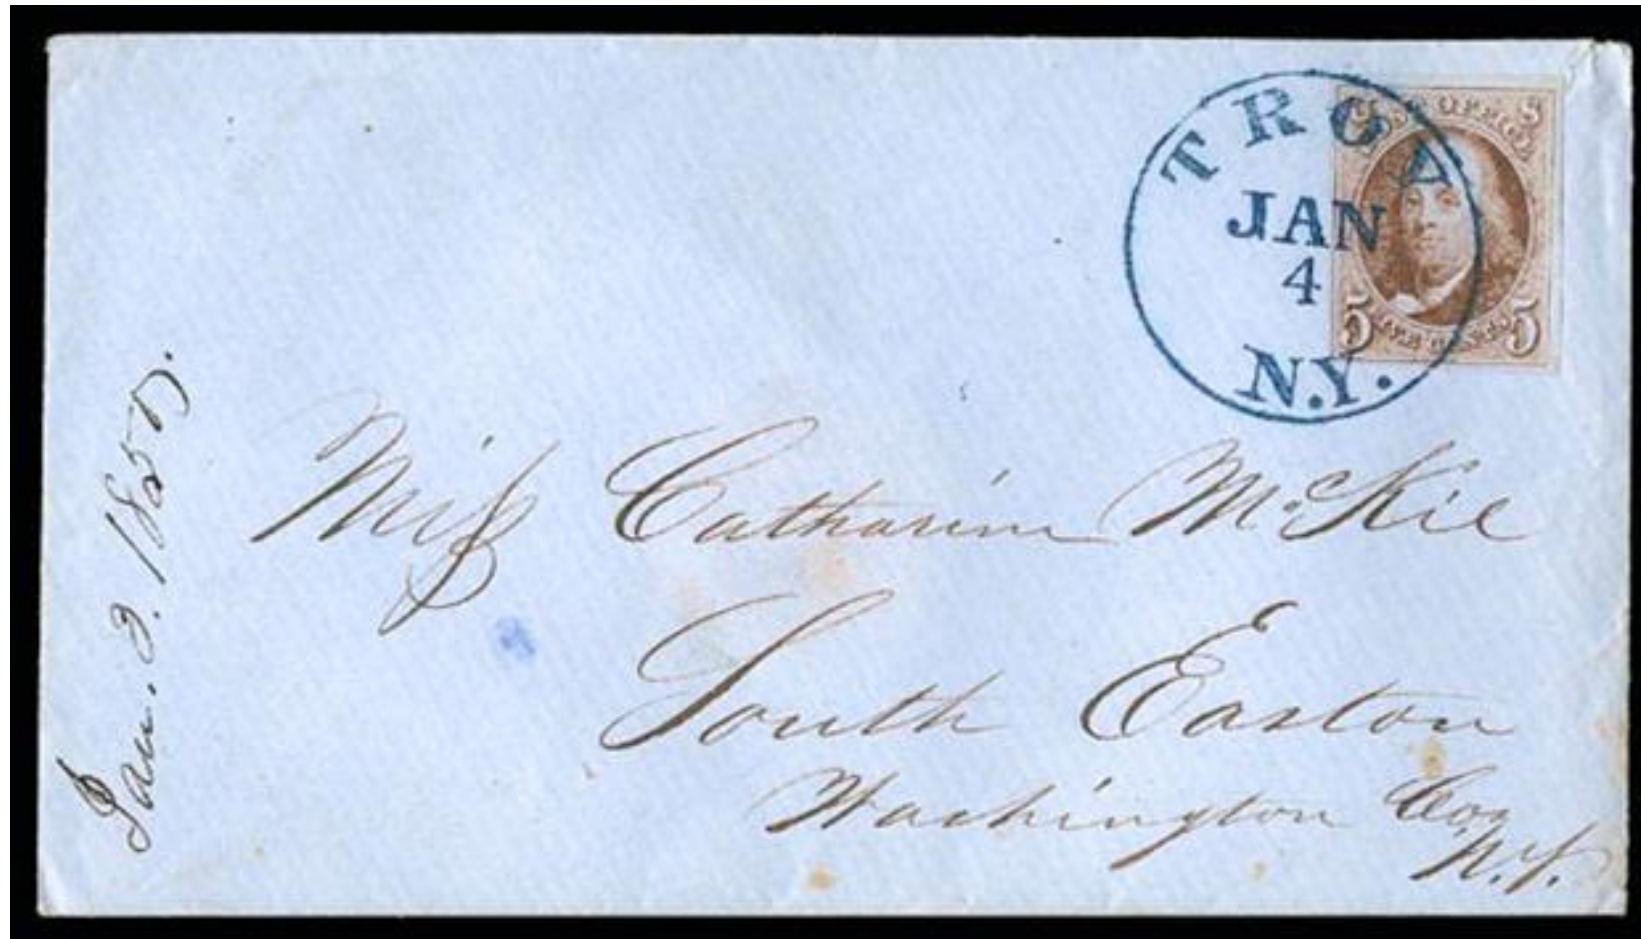 TROY
JAN
4
N.Y.
POST OFFICE
U S
5 5
FIVE CENTS
Jan. 3. 1850.
Miss Catharine McKie
South Easton
Washington Co.
N.Y.